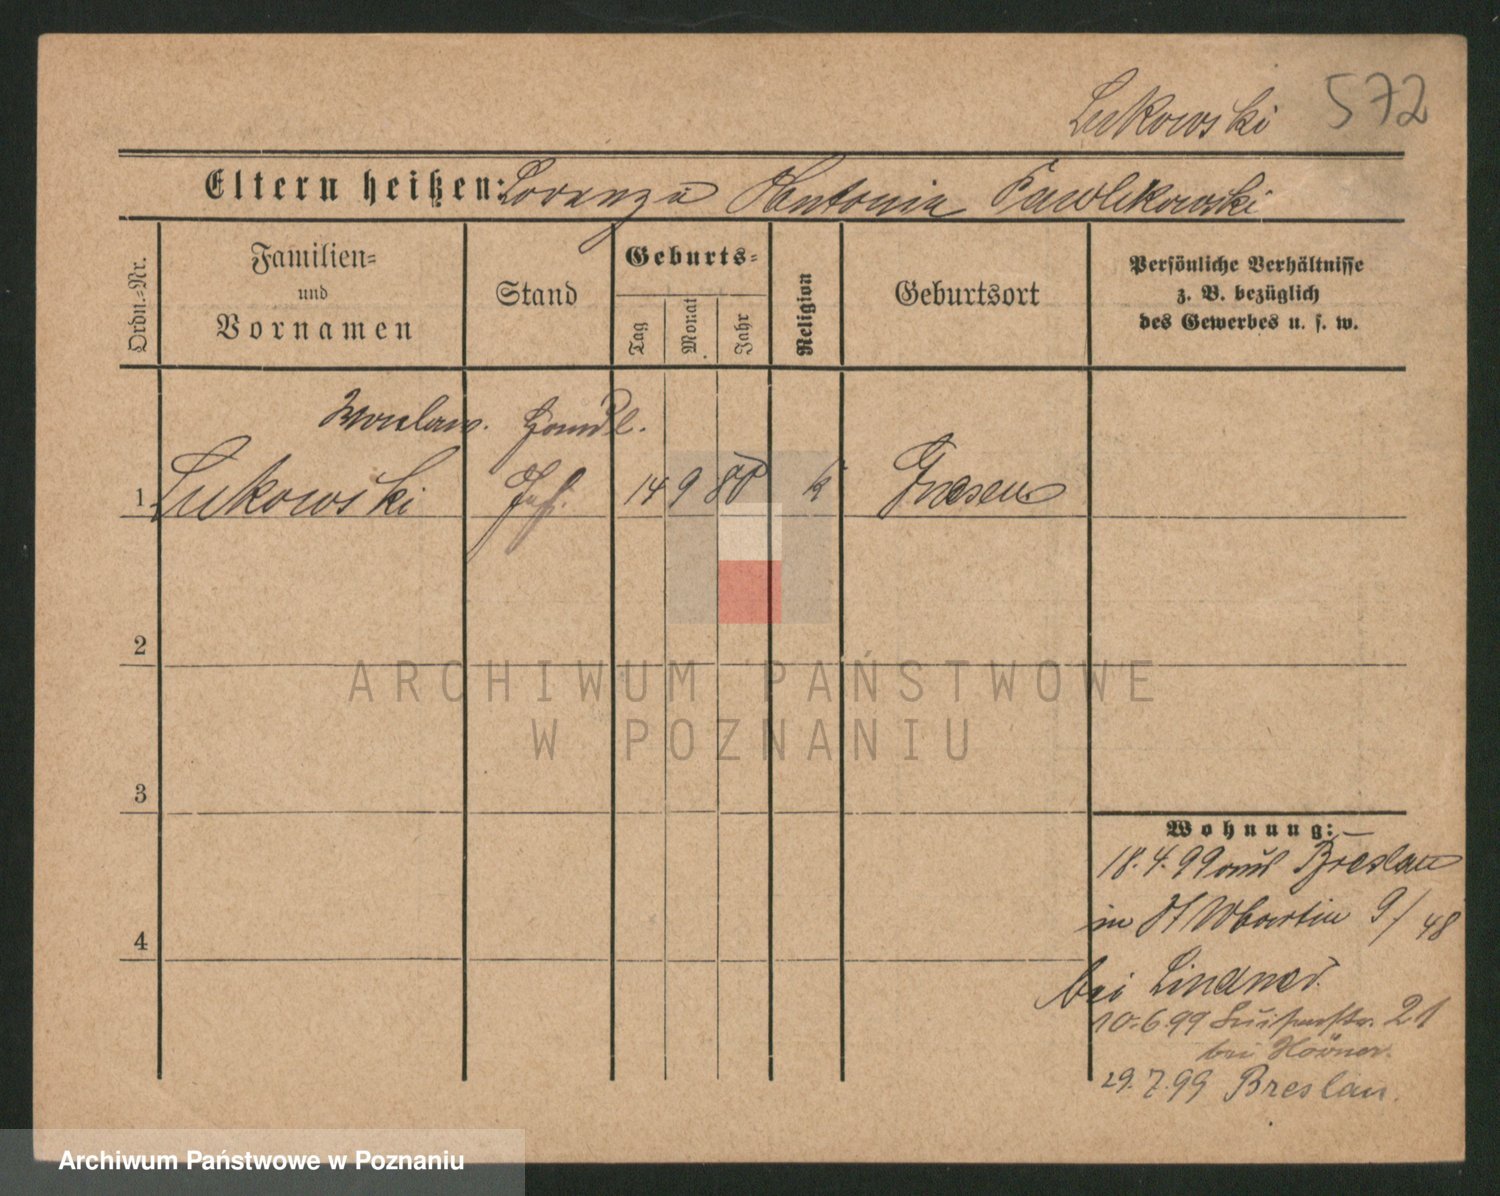 Lukowski 572
Eltern heißen: Lorenz u Antonia Pawlikowski
Ordn.-Nr.
Familien-
und
Vornamen
Stand
Geburts-
Tag
Monat
Jahr
Religion
Geburtsort
Persönliche Verhältnisse
z. B. bezüglich
des Gewerbes u. s. w.
Handl.
1 Lukowski 14 9 80 k Gnesen
2
3
4
Wohnung:
18.4.99 aus Breslau
in St Martin 9/48
bei Lindner
10.6.99 Luisenstr. 21
bei
29.7.99 Breslau.
ARCHIWUM PAŃSTWOWE
W POZNANIU
Archiwum Państwowe w Poznaniu